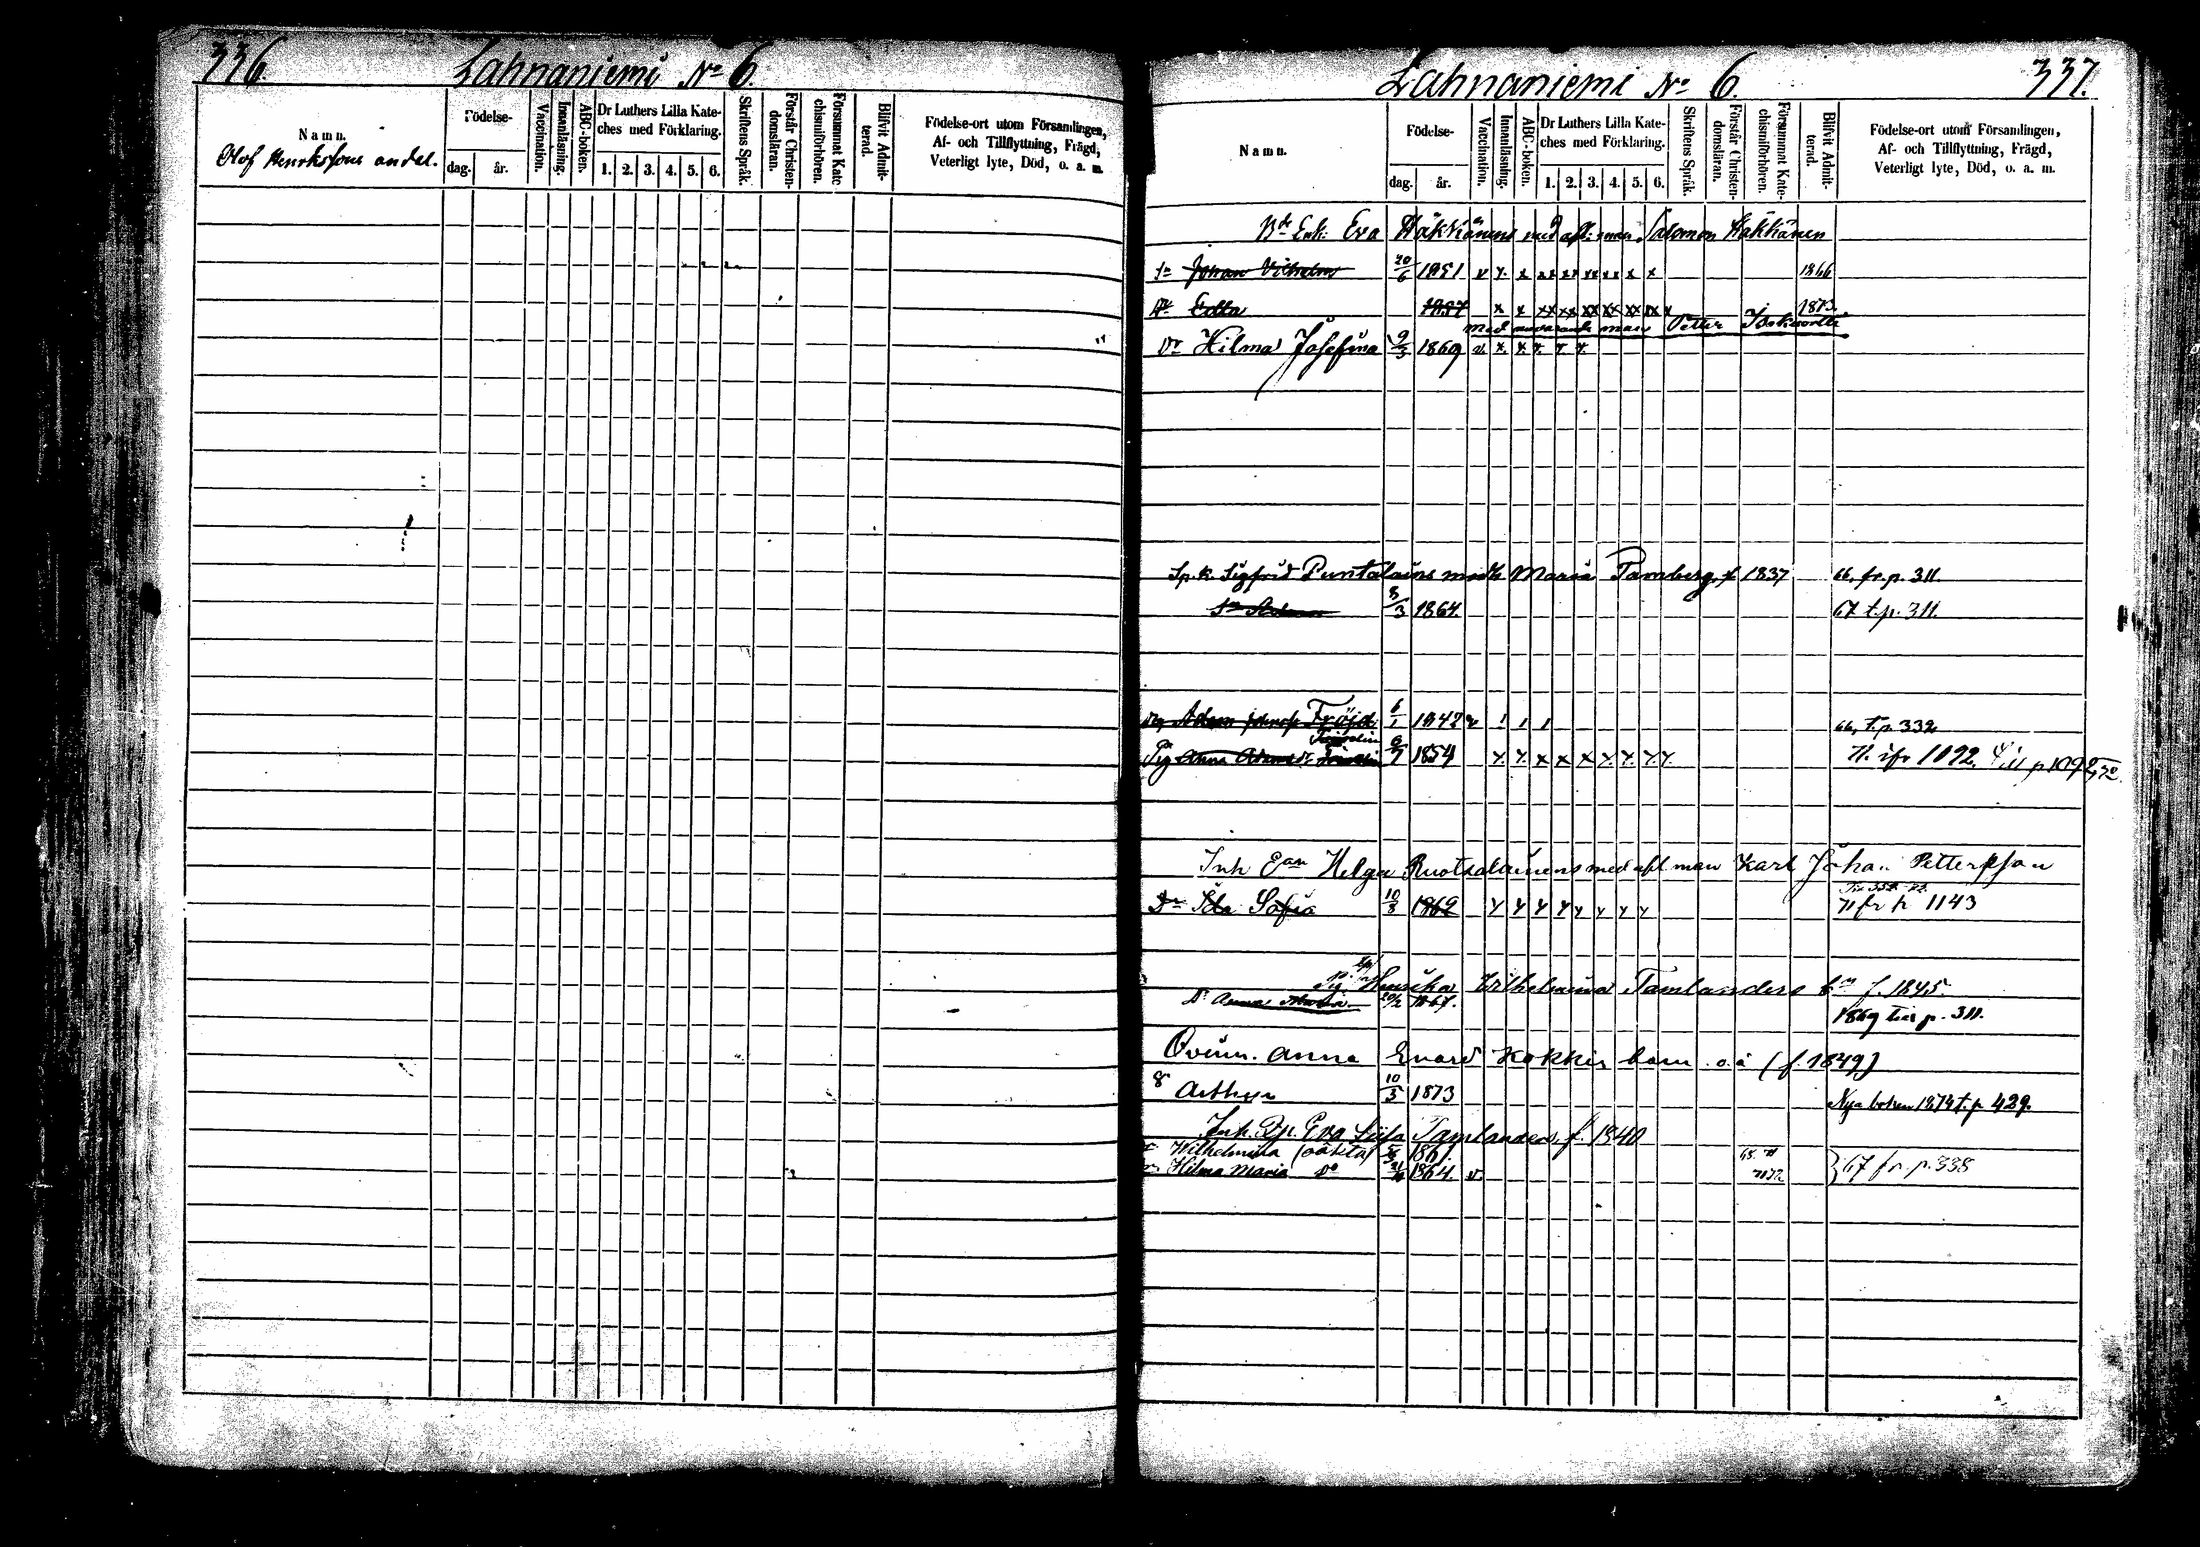 336.
Lahnaniemi No 6.
Namn.
Födelse-
dag.
år.
Vaccination.
Innanläsning.
ABC-boken.
Dr Luthers Lilla Kate-
ches med Förklaring.
1. 2. 3. 4. 5. 6.
Skriftens Språk.
Förstår Christen-
domsläran.
Försummat Kate
chismiförhören.
Blifvit Admit-
terad.
Födelse-ort utom Församlingen,
Af- och Tillflyttning, Frägd,
Veterligt lyte, Död, o. a. m.
Olof Henrikssons andel.
Lahnaniemi No 6.
337.
Namn.
Födelse-
dag.
år.
Vaccination.
Innanläsning.
ABC-boken.
Dr Luthers Lilla Kate-
ches med Förklaring.
1. 2. 3. 4. 5. 6.
Skriftens Språk.
Förstår Christen-
domsläran.
Försummat Kate-
chismiförhören.
Blifvit Admit-
terad.
Födelse-ort utom Församlingen,
Af- och Tillflyttning, Frägd,
Veterligt lyte, Död, o. a. m.
Enk. Eva Häkkänens med afl. man Salomon Häkkänen
Sn Johan Vilhelm 20/6 1851 v x x xx xx xx xx x x 1866
Dr Edla 1857 x x xx xx xx xx xx xx x 1873.
med man Petter
Dr Hilma Josefina 9/3 1869 v. x. x. x. x. x.
Sp. k. Sigfrid Puntalains Maria Tamberg f 1837 66, fr. p. 311.
8/3 1864. 67 t. p. 311.
Adam Fröjd 6/1 1842 v 1 1 1 66, t. p. 332
Pig Anna Adamsdr 6/7 1854 x x x x x x x x x 71. ifr 1092. Till p 1092
Inh Ean Helga Ruotsalainens med afl man Karl Johan Petterſson
Dr Ida Sofia 10/8 1862 x x x x x x x x 71 fr p 1143
Pig Henrika Vilhelmina Tamlanders bn f. 1845.
Dr Anna Maria 20/2 1867.
1869 till p. 311.
Anna Evard Kokkis barn o. ä (f. 1849)
Arthur 10/3 1873 Nya boken 1874 t. p 429.
Inh. Dp. Eva Lisa Tamlanders f. 1840
Wilhelmina (oäkta) 1861.
Hilma Maria Do 1864. v. } 67 fr. p. 338